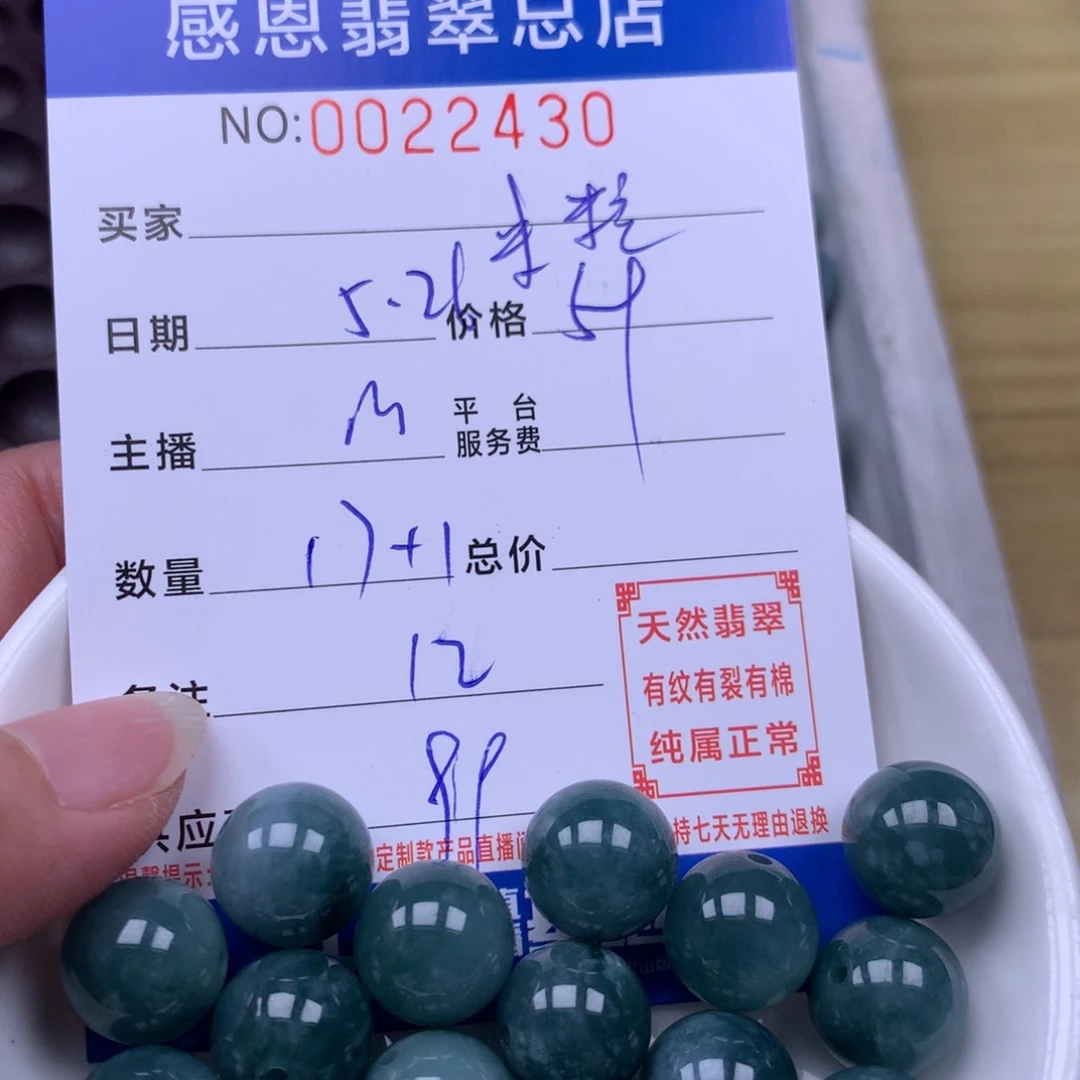 感恩翡翠总店
NO:0022430
买家
日期 5.21 价格 54
主播 M 平台服务费
数量 17+1 总价
备注 12
89
天然翡翠
有纹有裂有棉
纯属正常
供应
温馨提示:
定制款产品直播间
持七天无理由退换